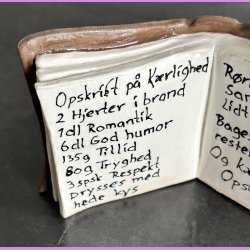 Opskrift på Kærlighed
2 Hjerter i brand
1dl Romantik
6dl God humor
135g Tillid
80g Tryghed
3spsk Respekt
Drysses med
hede kys
Rør
San
lidt
Bage
resten
Og Kæ
Ops